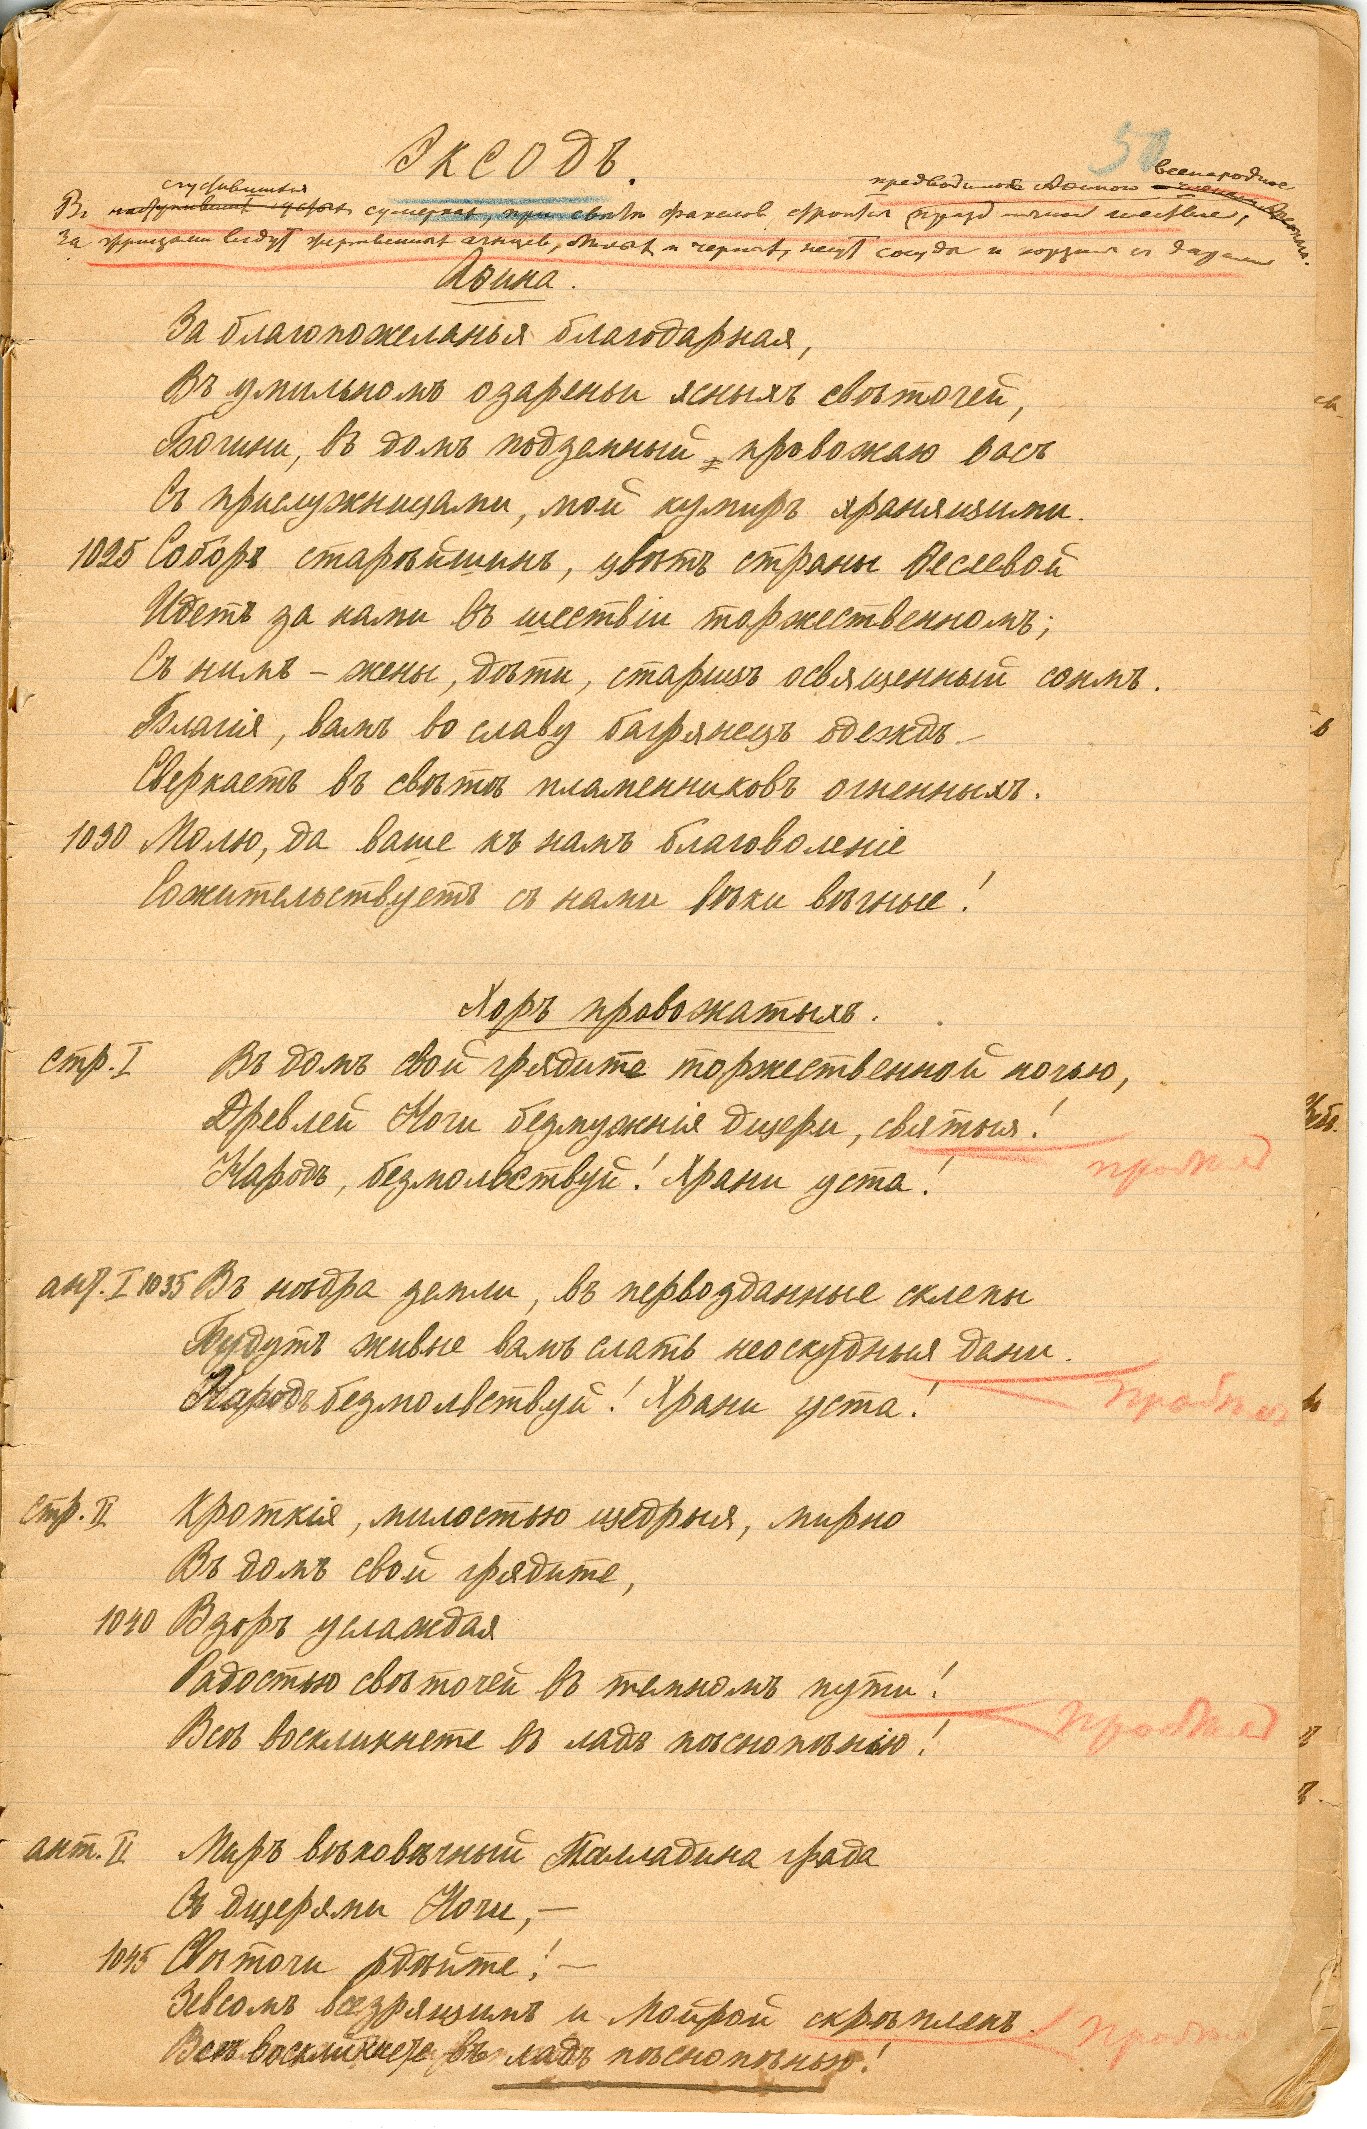 50
Эксодъ.
сгустившихся
предводимое Аѳиною всенародное
Въ сумеркахъ, при свѣтѣ факеловъ строится праздничное шествіе,
За жрицами ведутъ жертвенныхъ агнцевъ, бѣлыхъ и черныхъ, несутъ сосуды и корзины съ дарами
Аѳина.
За благопожеланья благодарная,
Въ умильномъ озареньи ясныхъ свѣточей,
Богини, въ домъ подземный провожаю васъ
Съ прислужницами, мой кумиръ хранящими.
1025 Соборъ старѣйшинъ, цвѣтъ страны Ѳесеевой
Идетъ за нами въ шествіи торжественномъ;
Съ нимъ – жены, дѣти, старицъ освященный сонмъ.
Благія, вамъ во славу багрянецъ одеждъ –
Сверкаетъ въ свѣтѣ пламенниковъ огненныхъ.
1030 Молю, да ваше къ намъ благоволеніе
Сожительствуетъ съ нами вѣки вѣчные!
Хоръ провожатыхъ.
стр. I Въ домъ свой грядите торжественной ночью,
Древлей Ночи безмужнія дщери, святыя!
пробѣлъ
Народъ, безмолвствуй! Храни уста!
ант. I 1035 Въ нѣдра земли, въ первозданные склепы
Будутъ живые вамъ слать неоскудныя дани.
пробѣлъ
Народъ безмолвствуй! Храни уста!
стр. II Кроткія, милостью щедрыя, мирно
Въ домъ свой грядите,
1040 Взоръ услаждая
Радостью свѣточей въ темномъ пути!
пробѣлъ
Всѣ воскликнете въ ладъ пѣснопѣнію!
ант. II Миръ вѣковѣчный Палладина града
Съ дщерями Ночи, –
1045 Свѣточи рдѣйте! –
Зевсомъ всезрящимъ и Мойрой скрѣпленъ.
пробѣлъ
Всѣ воскликнете въ ладъ пѣснопѣнью!